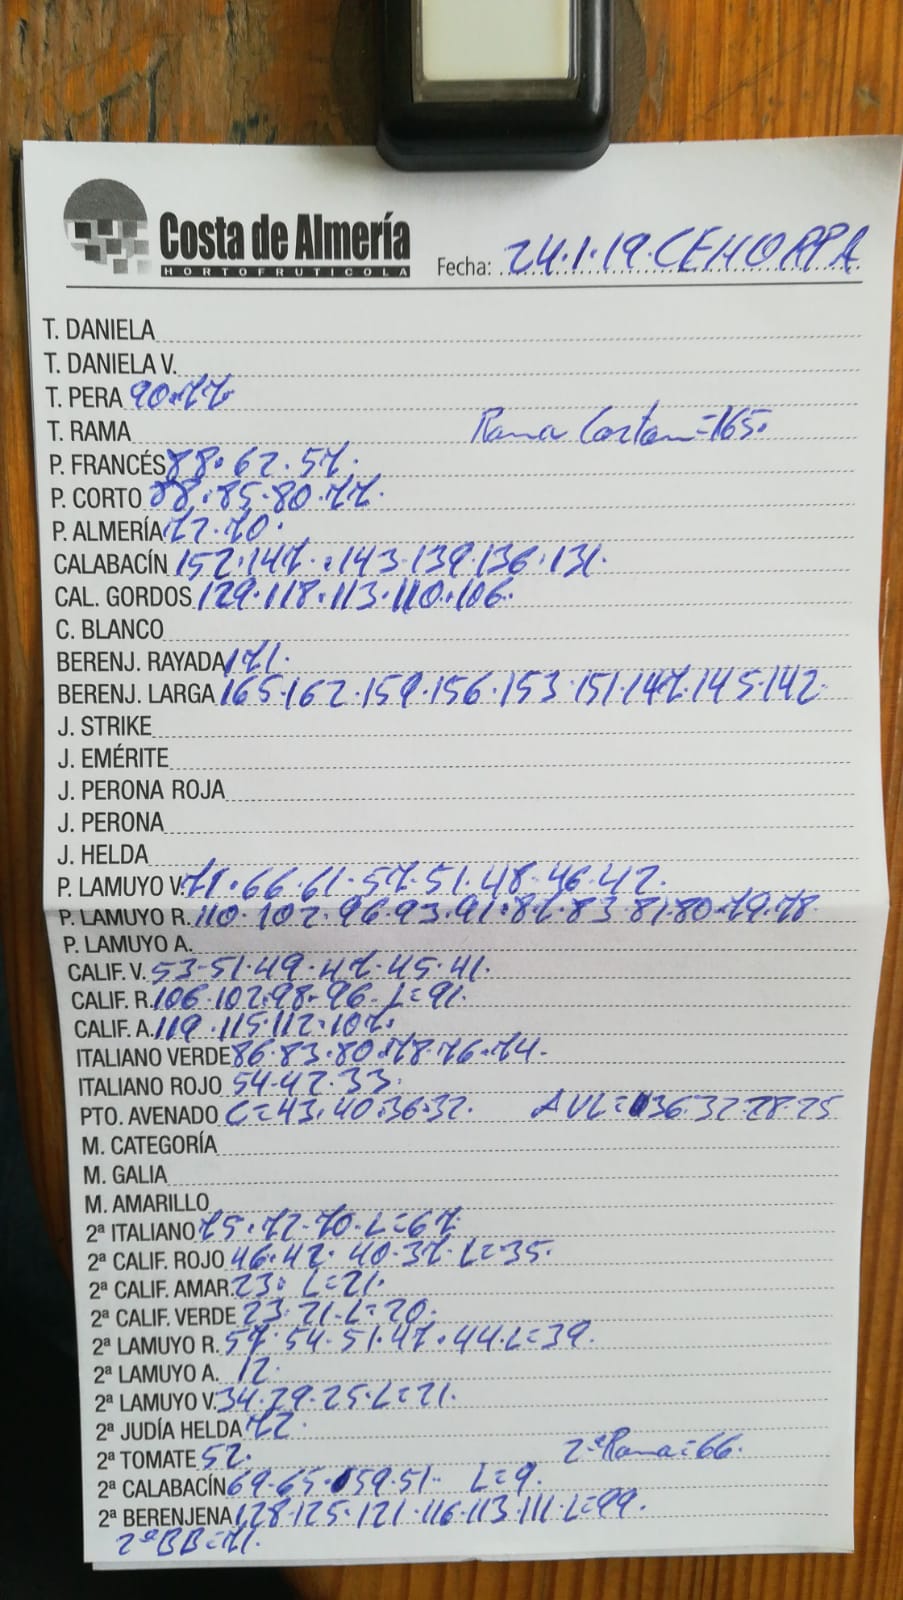 Costa de Almería
HORTOFRUTICOLA
Fecha: 24.1.19.CEHORPA
T. DANIELA
T. DANIELA V.
T. PERA 90.77.
T. RAMA Rama =165.
P. FRANCÉS 88.62.57.
P. CORTO 88.85.80.77.
P. ALMERÍA 72.70.
CALABACÍN 152.147.143.139.136.131.
CAL. GORDOS 129.118.113.110.106.
C. BLANCO
BERENJ. RAYADA 171.
BERENJ. LARGA 165.162.159.156.153.151.147.145.142.
J. STRIKE
J. EMÉRITE
J. PERONA ROJA
J. PERONA
J. HELDA
P. LAMUYO V. 71.66.61.57.51.48.46.42.
P. LAMUYO R. 110.102.96.93.91.87.83.81.80.79.78.
P. LAMUYO A.
CALIF. V. 53.51.49.47.45.41.
CALIF. R. 106.102.98.96.L=91.
CALIF. A. 119.115.112.107.
ITALIANO VERDE 86.83.80.78.76.74.
ITALIANO ROJO 54.42.33.
PTO. AVENADO C=43.40.36.32. AVL=36.32.28.25
M. CATEGORÍA
M. GALIA
M. AMARILLO
2ª ITALIANO 75.72.70.L=67.
2ª CALIF. ROJO 46.42.40.37.L=35.
2ª CALIF. AMAR. 23. L=21.
2ª CALIF. VERDE 23.21.L=20.
2ª LAMUYO R. 57.54.51.47.44.L=39.
2ª LAMUYO A. 12.
2ª LAMUYO V. 34.29.25.L=21.
2ª JUDÍA HELDA 72.
2ª TOMATE 52. 2ªRama=66.
2ª CALABACÍN 69.65.59.51. L=9.
2ª BERENJENA 128.125.121.116.113.111.L=99.
2ªBB=71.